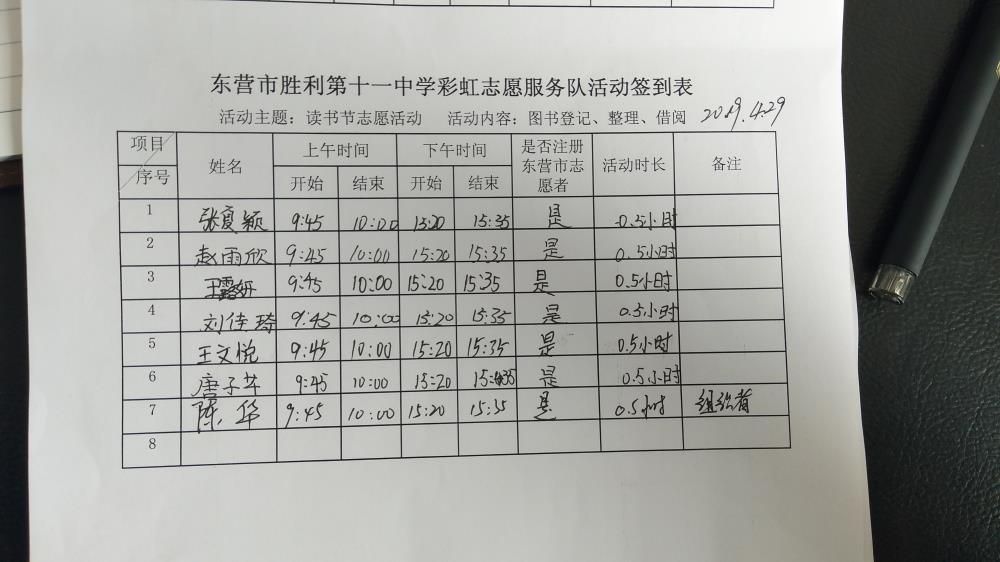 东营市胜利第十一中学彩虹志愿服务队活动签到表
活动主题：读书节志愿活动 活动内容：图书登记、整理、借阅 2019.4.29
项目 序号 姓名 上午时间 下午时间 是否注册东营市志愿者 活动时长 备注
开始 结束 开始 结束
1 张夏颖 9:45 10:00 15:20 15:35 是 0.5小时
2 赵雨欣 9:45 10:00 15:20 15:35 是 0.5小时
3 王露妍 9:45 10:00 15:20 15:35 是 0.5小时
4 刘佳琦 9:45 10:00 15:20 15:35 是 0.5小时
5 王文悦 9:45 10:00 15:20 15:35 是 0.5小时
6 唐子芊 9:45 10:00 15:20 15:35 是 0.5小时
7 陈华 9:45 10:00 15:20 15:35 是 0.5小时 组织者
8